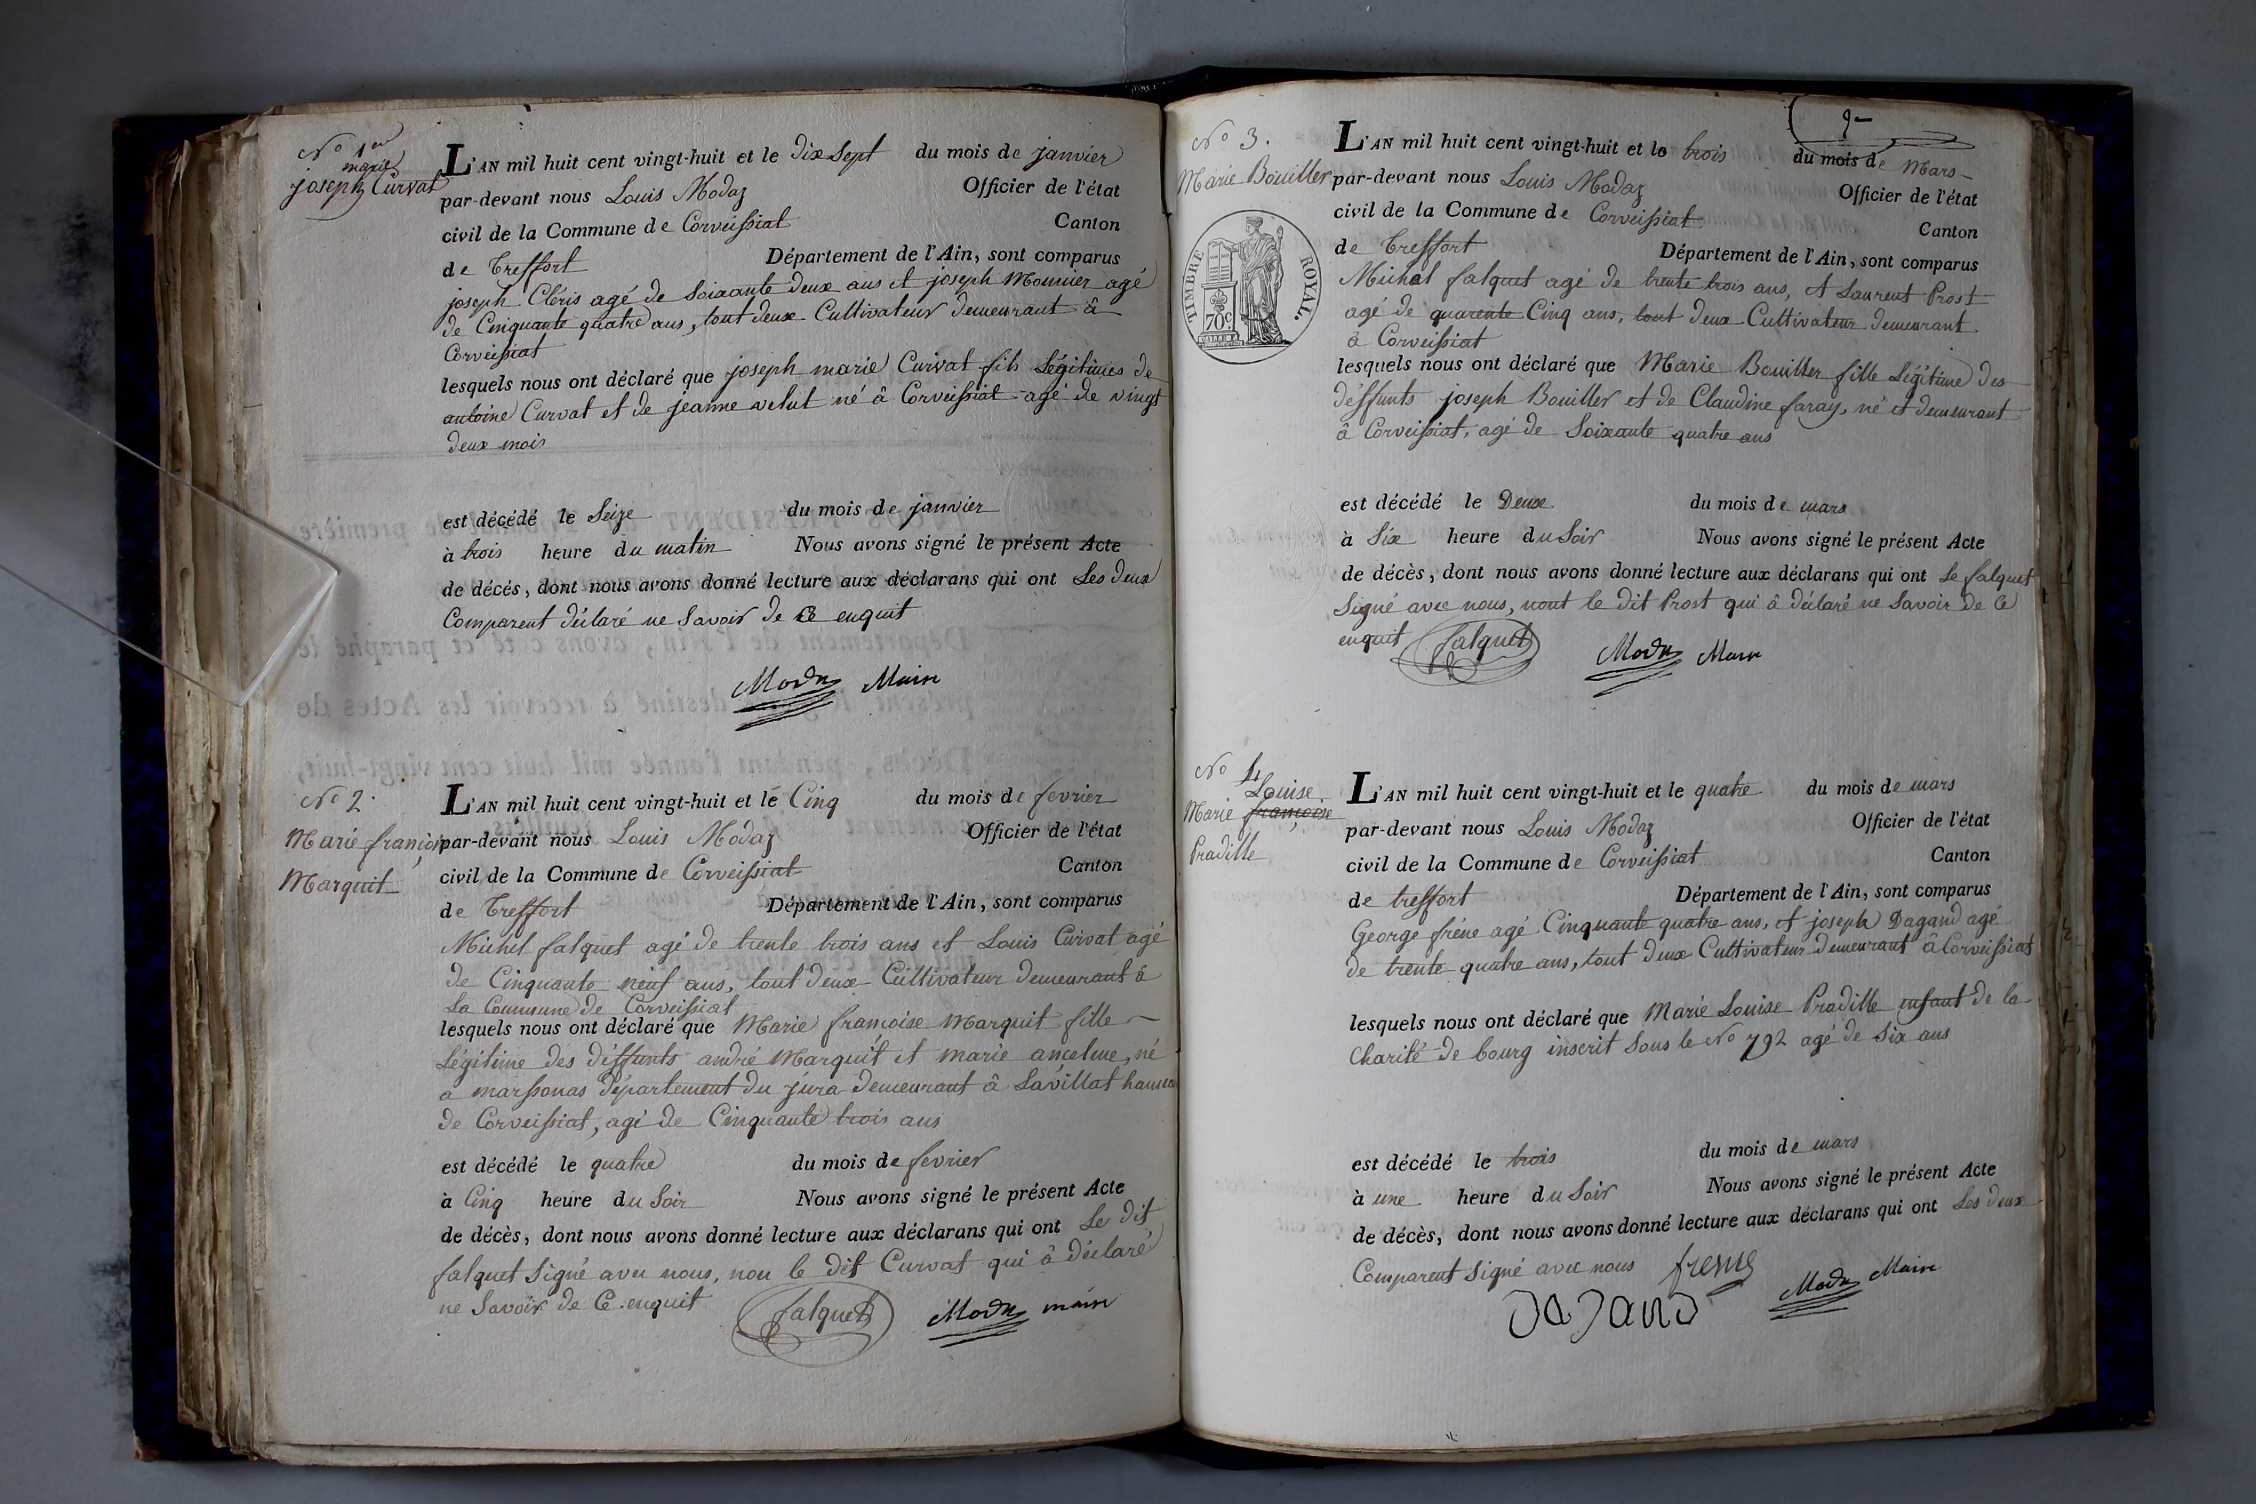 No 1er
marie
joseph Curvat
L'AN mil huit cent vingt-huit et le dix Sept du mois de janvier
par-devant nous Louis Modaz Officier de l'état
civil de la Commune de Corveissiat Canton
de Treffort Département de l'Ain, sont comparus
joseph Cléris agé de Soixante deux ans et joseph Mounier agé
de Cinquante quatre ans, tout deux Cultivateur demeurant â
Corveissiat
lesquels nous ont déclaré que joseph marie Curvat fils Légitimes de
antoine Curvat et de jeanne velut né â Corveissiat agé de vingt
deux mois
est décédé le Seize du mois de janvier
à trois heure du matin Nous avons signé le présent Acte
de décés, dont nous avons donné lecture aux déclarans qui ont Les deux
Comparent déclaré ne Savoir de Ce enquit
Modaz Maire
No 2.
Marie françoise
Marquit
L'AN mil huit cent vingt-huit et le Cinq du mois de fevrier
par-devant nous Louis Modaz Officier de l'état
civil de la Commune de Corveissiat Canton
de Treffort Département de l'Ain, sont comparus
Michel falquet agé de trente trois ans et Louis Curvat agé
de Cinquante neuf ans, tout deux Cultivateur demeurant â
La Commune de Corveissiat
lesquels nous ont déclaré que Marie françoise Marquit fille
Légitime des déffunts andré Marquit et marie ancelme, né
a marssonas Département du jura demeurant â Lavillat hameau
de Corveissiat, agé de Cinquante trois ans
est décédé le quatre du mois de fevrier
à Cinq heure du Soir Nous avons signé le présent Acte
de décès, dont nous avons donné lecture aux déclarans qui ont Le dit
falquet Signé avec nous, non le dit Curvat qui â déclaré
ne Savoir de Ce enquit
falquet Modaz maire
9
No 3.
Marie Bouiller
TIMBRE ROYAL.
70c
L'AN mil huit cent vingt-huit et le trois du mois de Mars
par-devant nous Louis Modaz Officier de l'état
civil de la Commune de Corveissiat Canton
de Treffort Département de l'Ain, sont comparus
Michel falquet agé de trente trois ans, et Laurent Prost
agé de quarente Cinq ans, tout deux Cultivateur demeurant
â Corveissiat
lesquels nous ont déclaré que Marie Bouiller fille Légitime des
déffunts joseph Bouiller et de Claudine faray, né et demeurant
â Corveissiat, agé de Soixante quatre ans
est décédé le Deux du mois de mars
à Six heure du Soir Nous avons signé le présent Acte
de décès, dont nous avons donné lecture aux déclarans qui ont Le falquet
Signé avec nous, nont le dit Prost qui â déclaré ne Savoir de Ce
enquit falquet Modaz Maire
No 4
Louise
Marie françoise
Pradille
L'AN mil huit cent vingt-huit et le quatre du mois de mars
par-devant nous Louis Modaz Officier de l'état
civil de la Commune de Corveissiat Canton
de treffort Département de l'Ain, sont comparus
George fréne agé Cinquante quatre ans, et joseph Dagand agé
de trente quatre ans, tout deux Cultivateur demeurant â Corveissiat
lesquels nous ont déclaré que Marie Louise Pradille enfant de la
Charité de bourg inscrit Sous le No 792 agé de Six ans
est décédé le trois du mois de mars
à une heure du Soir Nous avons signé le présent Acte
de décès, dont nous avons donné lecture aux déclarans qui ont Les deux
Comparent Signé avec nous frene Modaz Maire
Dagand